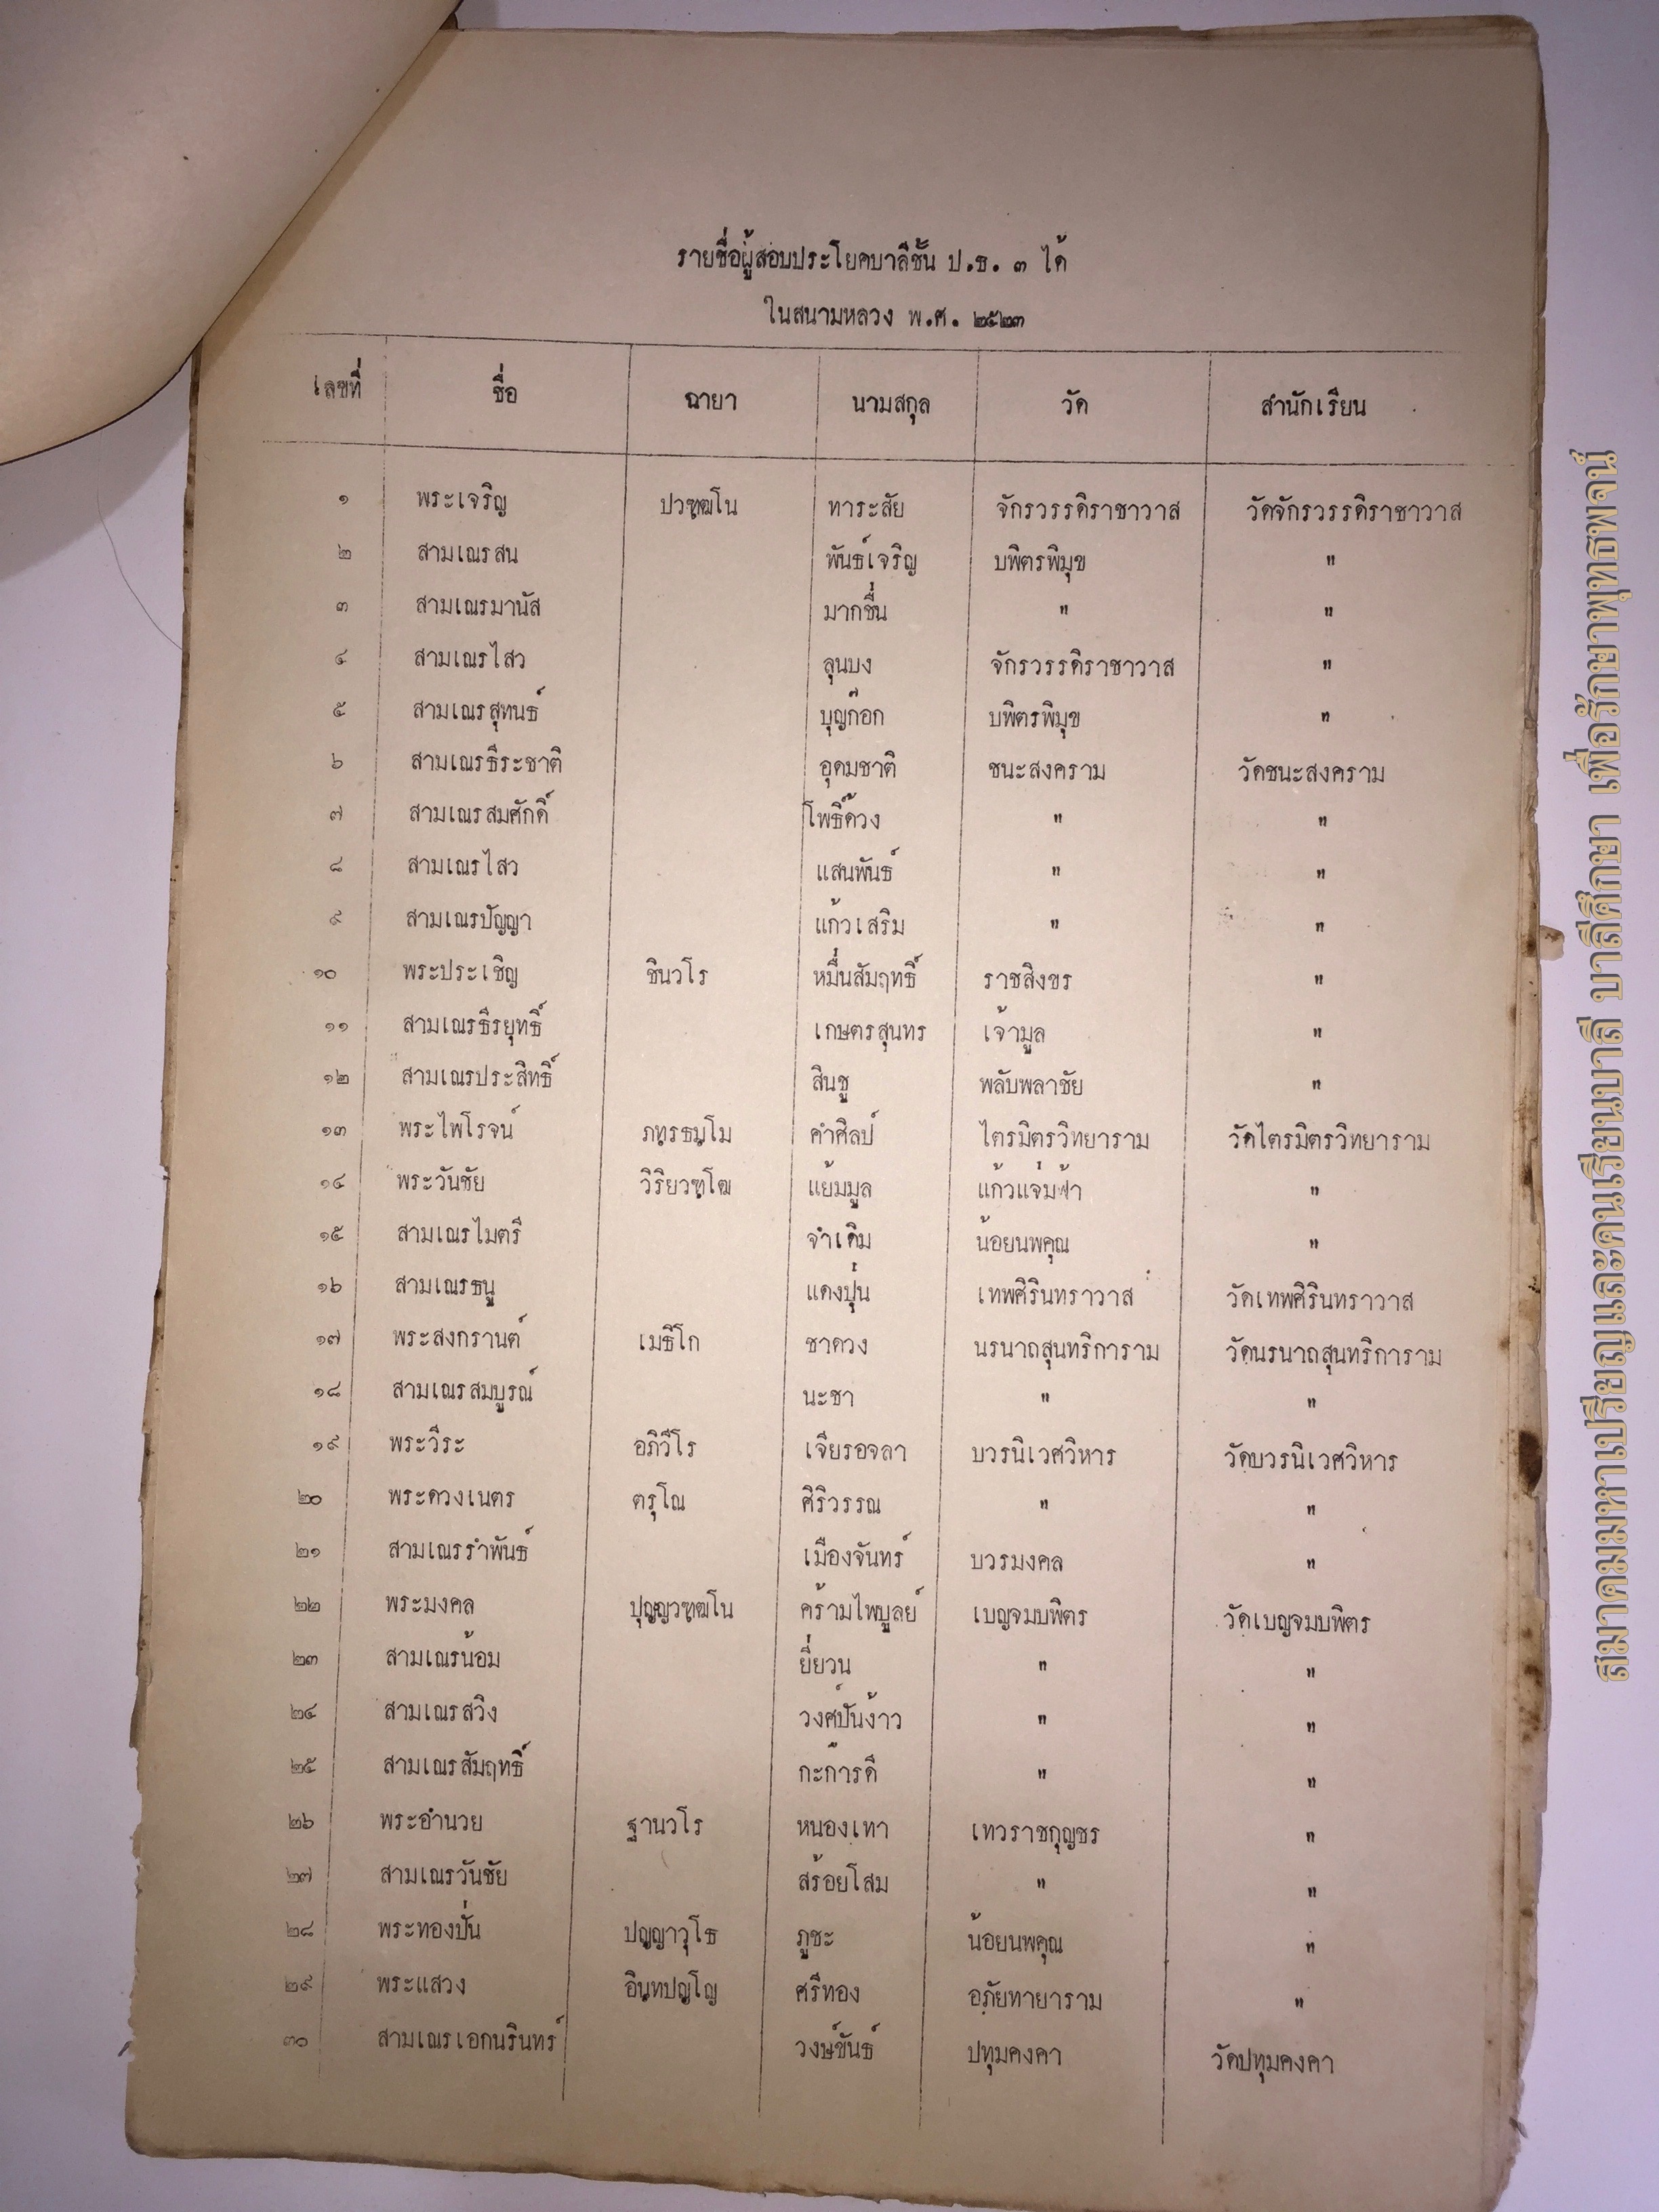 รายชื่อผู้สอบประโยคบาลีชั้น ป.ธ. ๓ ได้
ในสนามหลวง พ.ศ. ๒๕๒๓
เลขที่ ชื่อ ฉายา นามสกุล วัด สำนักเรียน
๑ พระเจริญ ปวฑฺฒโน ทาระสัย จักรวรรดิราชาวาส วัดจักรวรรดิราชาวาส
๒ สามเณรสน พันธ์เจริญ บพิตรพิมุข "
๓ สามเณรมานัส มากชื่น " "
๔ สามเณรไสว ลุนบง จักรวรรดิราชาวาส "
๕ สามเณรสุทนธ์ บุญก๊อก บพิตรพิมุข "
๖ สามเณรธีระชาติ อุดมชาติ ชนะสงคราม วัดชนะสงคราม
๗ สามเณรสมศักดิ์ โพธิ์ด้วง " "
๘ สามเณรไสว แสนพันธ์ " "
๙ สามเณรปัญญา แก้วเสริม " "
๑๐ พระประเชิญ ชินวโร หมื่นสัมฤทธิ์ ราชสิงขร "
๑๑ สามเณรธีรยุทธิ์ เกษตรสุนทร เจ้ามูล "
๑๒ สามเณรประสิทธิ์ สินชู พลับพลาชัย "
๑๓ พระไพโรจน์ ภทฺรธมฺโม คำศิลป์ ไตรมิตรวิทยาราม วัดไตรมิตรวิทยาราม
๑๔ พระวันชัย วิริยวฑฺโฒ แย้มมูล แก้วแจ่มฟ้า "
๑๕ สามเณรไมตรี จำเดิม น้อยนพคุณ "
๑๖ สามเณรธนู แดงปุ่น เทพศิรินทราวาส วัดเทพศิรินทราวาส
๑๗ พระสงกรานต์ เมธิโก ชาดวง นรนาถสุนทริการาม วัดนรนาถสุนทริการาม
๑๘ สามเณรสมบูรณ์ นะชา " "
๑๙ พระวีระ อภิวีโร เจียรอจลา บวรนิเวศวิหาร วัดบวรนิเวศวิหาร
๒๐ พระดวงเนตร ตรุโณ ศิริวรรณ " "
๒๑ สามเณรรำพันธ์ เมืองจันทร์ บวรมงคล "
๒๒ พระมงคล ปุญฺญวฑฺฒโน คร้ามไพบูลย์ เบญจมบพิตร วัดเบญจมบพิตร
๒๓ สามเณรน้อม ยี่ยวน " "
๒๔ สามเณรสวิง วงศ์ปันง้าว " "
๒๕ สามเณรสัมฤทธิ์ กะการดี " "
๒๖ พระอำนวย ฐานวโร หนองเทา เทวราชกุญชร "
๒๗ สามเณรวันชัย สร้อยโสม " "
๒๘ พระทองปั่น ปญฺญาวุโธ ภูชะ น้อยนพคุณ "
๒๙ พระแสวง อินฺทปญฺโญ ศรีทอง อภัยทายาราม "
๓๐ สามเณรเอกนรินทร์ วงษ์ขันธ์ ปทุมคงคา วัดปทุมคงคา
สมาคมมหาเปรียญและคนเรียนบาลี บาลีศึกษา เพื่อรักษาพุทธพจน์